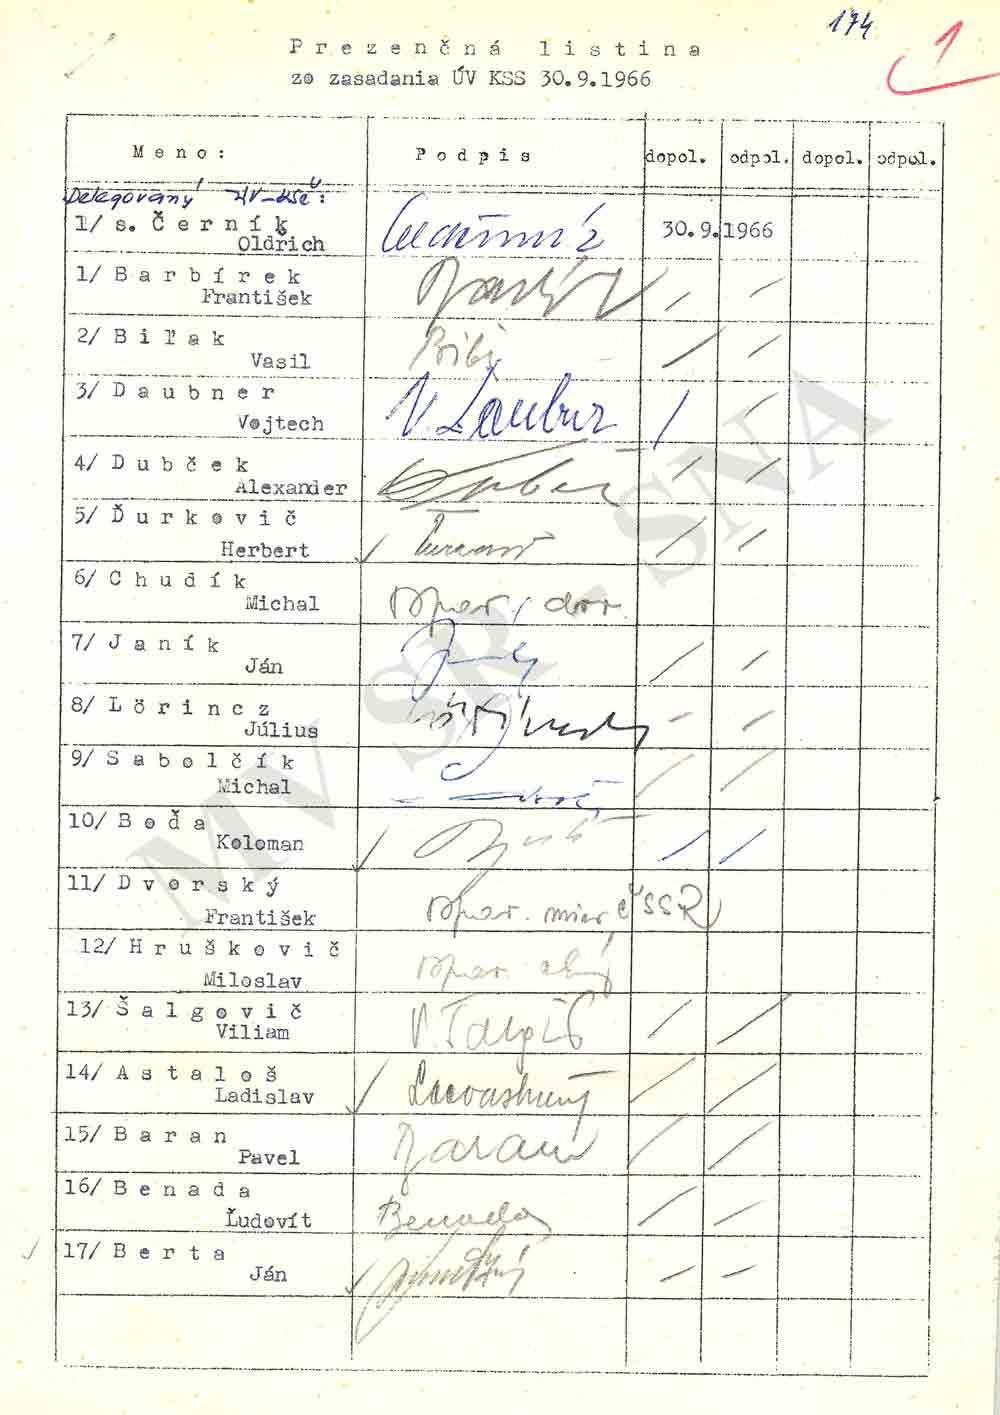 174
1
Prezenčná listina
zo zasadania ÚV KSS 30.9.1966
Meno: Podpis dopol. odpol. dopol. odpol.
Delegovaný ÚV-KSČ:
1/ s. Černík
Oldřich 30.9.1966
1/ Barbírek
František
2/ Biľak
Vasil
3/ Daubner
Vojtech V. Daubner
4/ Dubček
Alexander
5/ Ďurkovič
Herbert
6/ Chudík
Michal ospar. dov.
7/ Janík
Ján
8/ Lörincz
Július
9/ Sabolčík
Michal
10/ Boďa
Koloman
11/ Dvorský
František ospar. mimo ČSSR
12/ Hruškovič
Miloslav ospar.
13/ Šalgovič
Viliam
14/ Astaloš
Ladislav
15/ Baran
Pavel Baran
16/ Benada
Ľudovít Benada
17/ Berta
Ján
MV SR - SNA